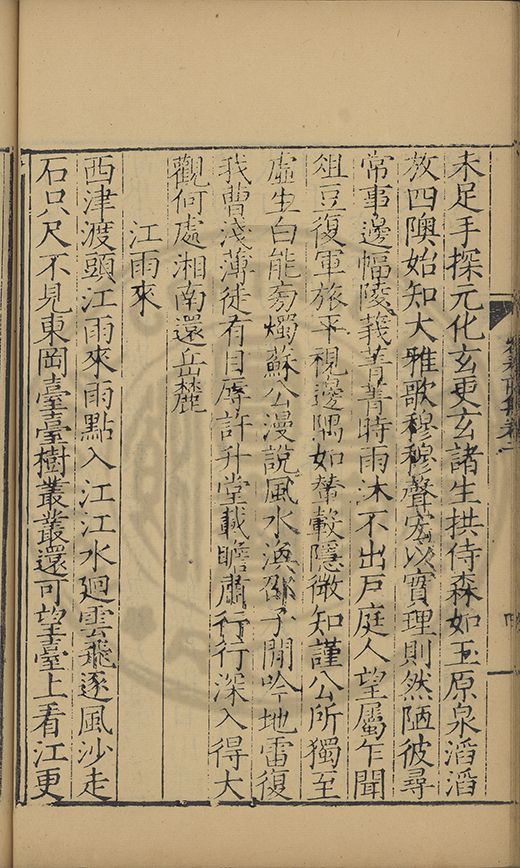 未足手探元化玄更玄諸生拱侍森如玉原泉滔滔
放四隩始知大雅歌穆穆聲宏以實理則然陋彼尋
常事邊幅陵莪菁菁時雨沐不出戶庭人望屬乍聞
俎豆復軍旅平視邊隅如輦轂隱微知謹公所獨至
虛生白能旁燭蘇公漫說風水渙邵子閒吟地雷復
我曹淺薄徒有目辱許升堂載瞻肅行行深入得大
觀何處湘南還岳麓
江雨來
西津渡頭江雨來雨點入江江水廻雲飛逐風沙走
石只尺不見東岡臺臺樹叢叢還可望臺上看江更